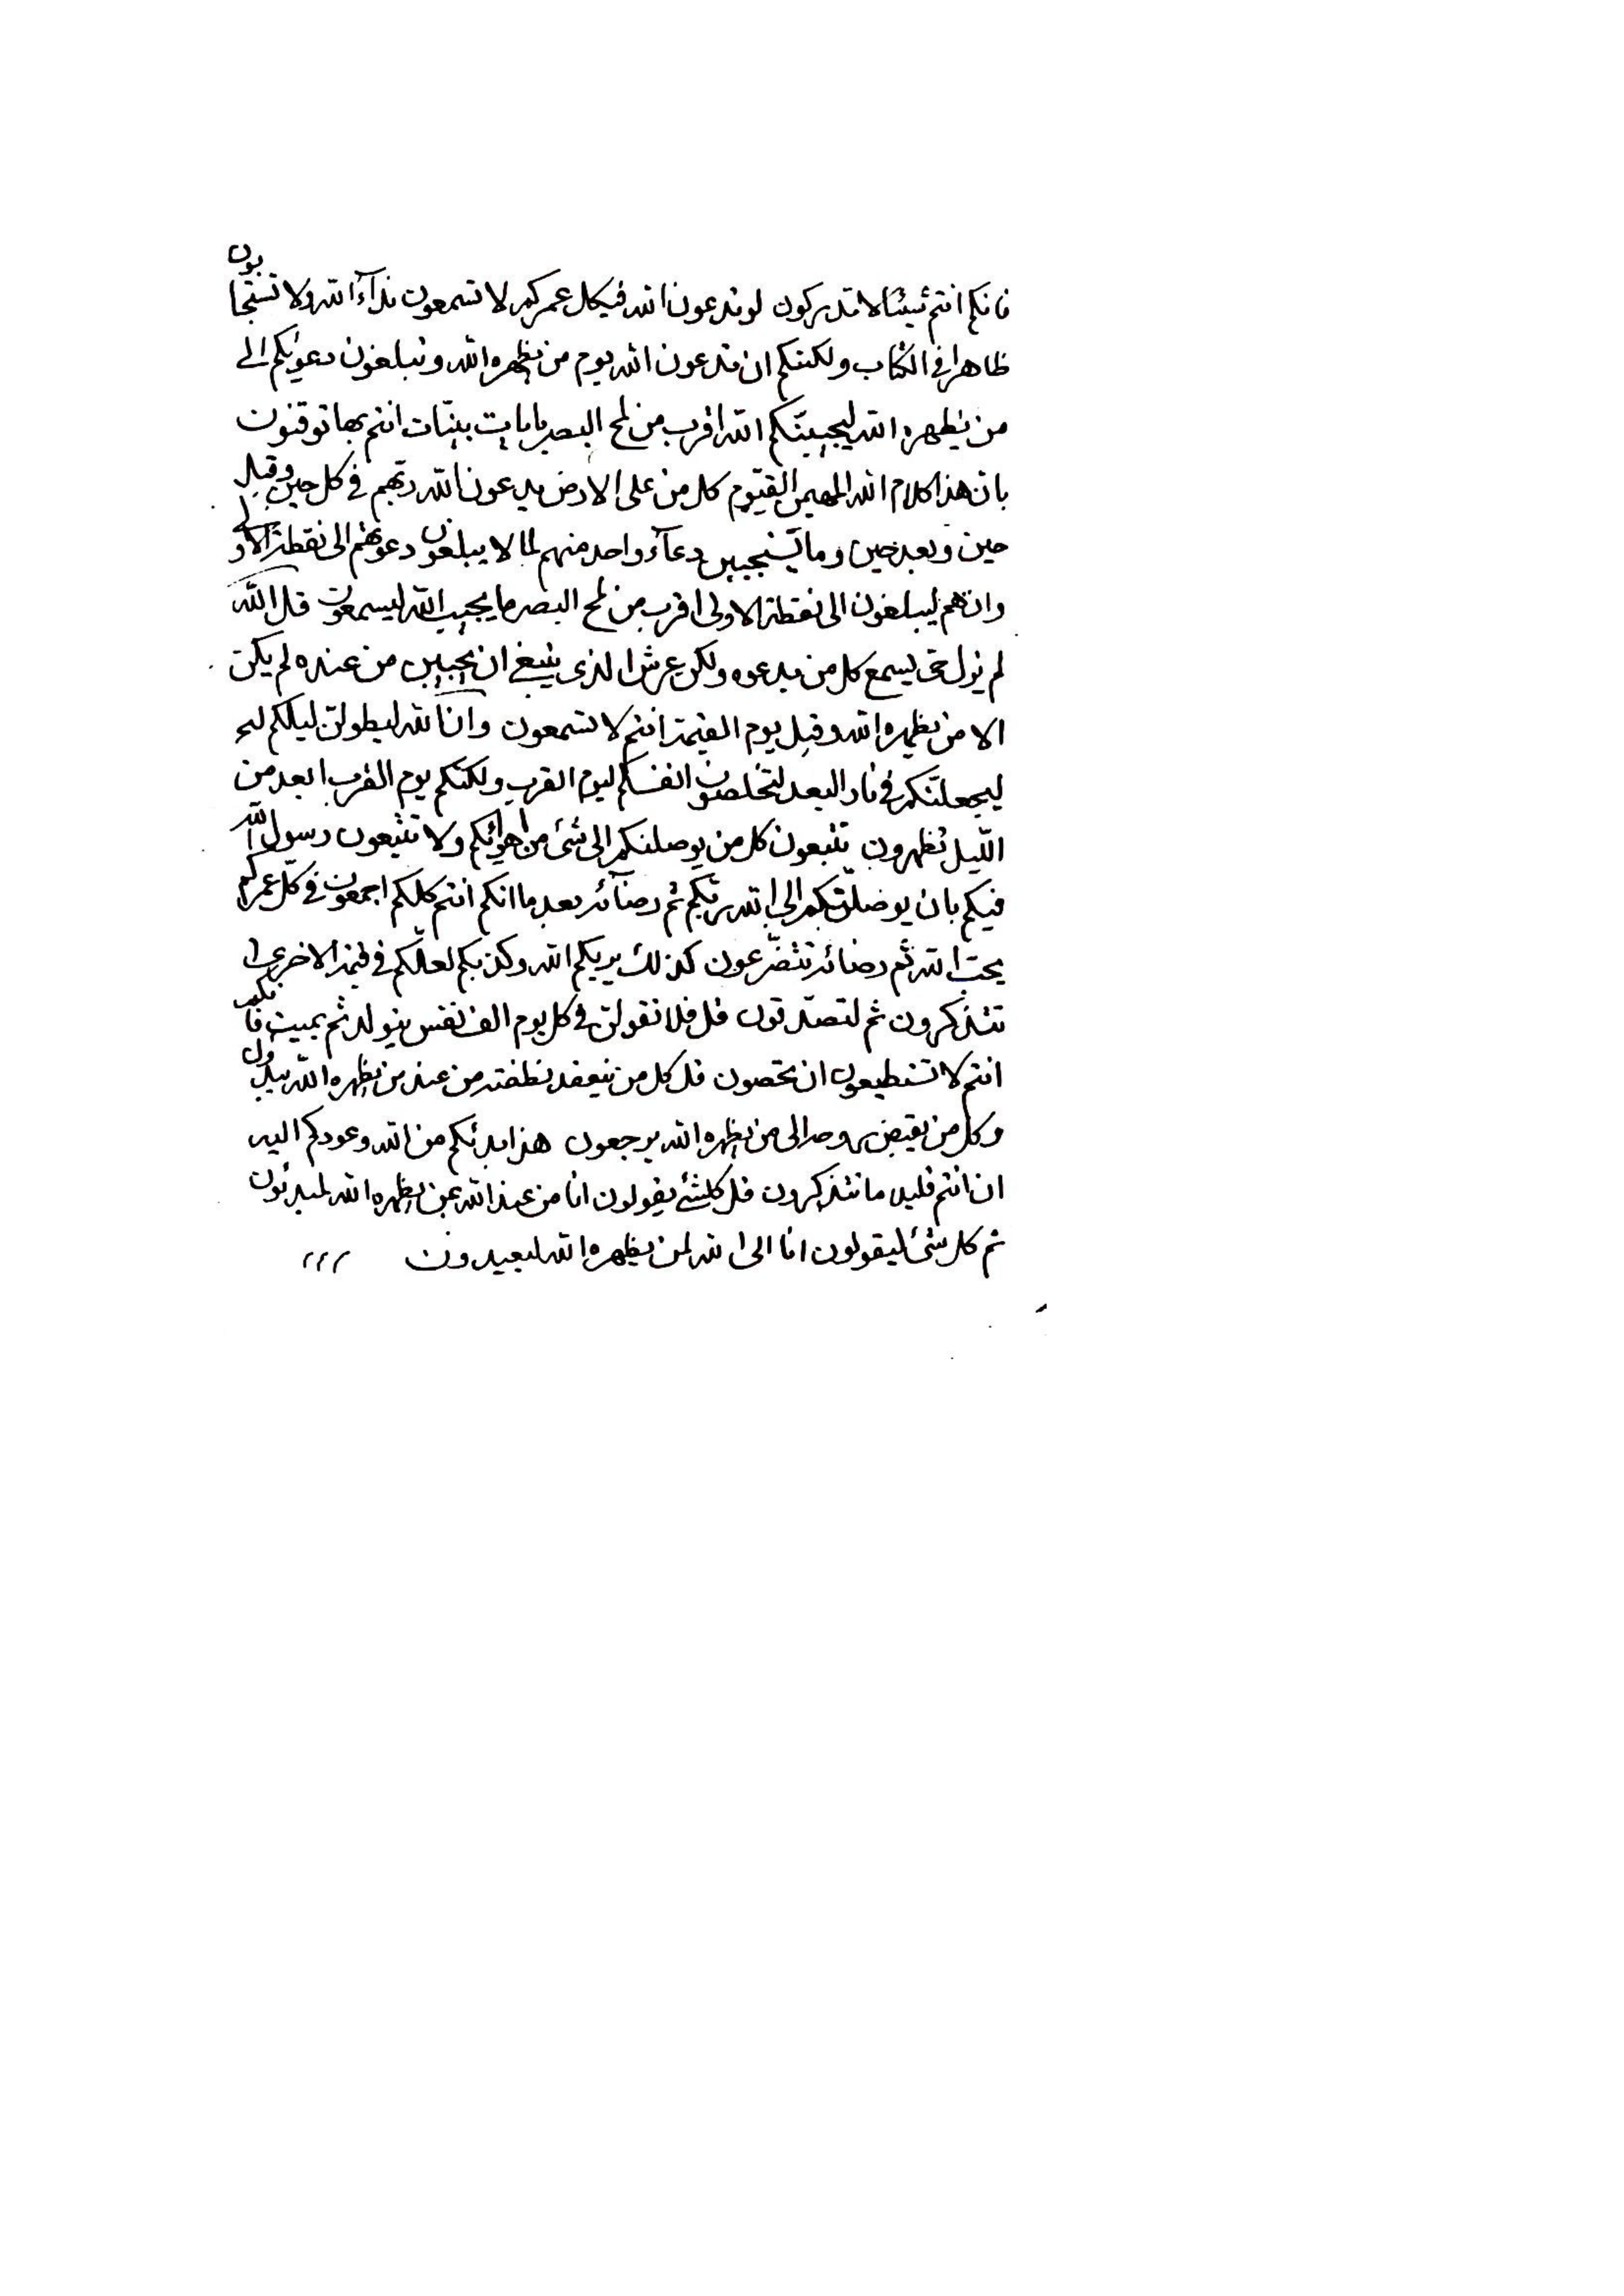 فانكم انتم شيئا لا تدركون لو تدعون الله فيكل عمركم لا تسمعون نداء الله ولا تستجابون
ظاهرا في الكتاب ولكنكم ان تدعون الله يوم من يظهره الله وتبلغون دعوئكم الى
من يظهره الله ليجيبنّكم الله اقرب من لمح البصر بايات بينّات انتم بها توقنون
بان هذا كلام الله المهيمن القيّوم كل من على الارض يدعون الله ربّهم في كل حين وقبل
حين وبعد حين وما يستجيبن دعآء واحد منهم لما لا يبلغون دعوتهم الى نقطة الاولى
وان هم ليبلغون الى نقطة الاولى اقرب من لمح البصر ما يجيب الله ليسمعون قل الله
لم يزل حى يسمع كل من يدعوه ولكن عرش الذى ينبغى ان يجيبن من عنده لم يكن
الا من يظهره الله وقبل يوم القيمة انتم لا تسمعون وان الله ليطولنّ ليلكم
ليجعلنّكم في نار البعد لتخلصون انفسكم ليوم القرب ولكنّكم يوم القرب ابعد من
اللّيل تظهرون تتبعون كل من يوصلنكم الى شئ من اهوائكم ولا تتّبعون رسول الله
فيكم بان يوصلنّكم الى الله ربّكم ثم رضآئه بعد ما انكم انتم كلكم اجمعون في كلّ عمركم
بحب الله ثم رضائه تتضرّعون كذلك يريكم الله وكذبكم لعلّكم في قيمة الاخرى
تتذكرون ثم لتصدّقون قل فلا تقولنّ في كل يوم الف نفس يتولد ثم يميت فانكم
انتم لا تستطيعون ان تحصون قل كل من ينعقد نطفته من عند من يظهره الله يبدؤن
وكل من يقبض روحه الى من يظهره الله يرجعون هذا بدئكم من الله وعودكم اليه
ان انتم قليلا ما تتذكرون قل كلشئ يقولون انا من عند الله عمن يظهره الله لمبدئون
ثم كل شئ ليقولون انا الى الله لمن يظهره الله ليعيدون